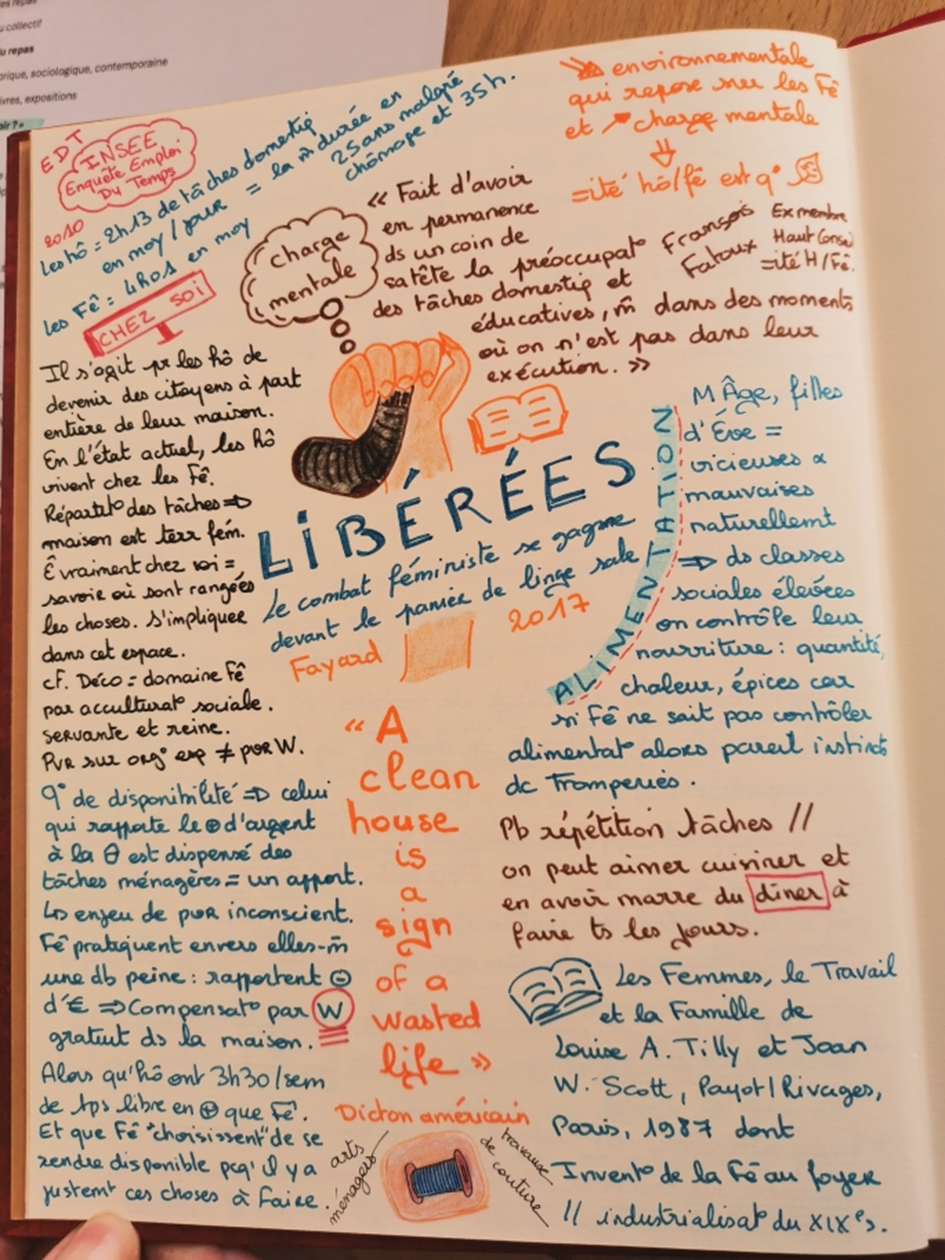 u collectif
u repas
orique, sociologique, contemporaine
ivres, expositions
oir ? »
EDT
INSEE
Enquête Emploi
Du Temps
2010
Les hô = 2h13 de tâches domestiq
en moy / jour = la m̂ durée en
25 ans malgré
chômage et 35h.
Les Fê = 4h01 en moy
CHEZ SOI
Il s'agit pr les hô de
devenir des citoyens à part
entière de leur maison.
En l'état actuel, les hô
vivent chez les Fê.
Répartit° des tâches =>
maison est terr fém.
Ê vraiment chez soi =
savoir où sont rangées
les choses. S'impliquer
dans cet espace.
cf. Déco = domaine Fê
par acculturat° sociale.
servante et reine.
Pvr sur org° esp ≠ pvr W.
q° de disponibilité => celui
qui rapporte le ⊕ d'argent
à la θ est dispensé des
tâches ménagères = un apport.
↳ enjeu de pvr inconscient.
Fê pratiquent envers elles-m̂
une db peine : rapportent ⊖
d'€ => Compensat° par W
gratuit ds la maison.
Alors qu'hô ont 3h30/sem
de tps libre en ⊕ que Fê.
Et que Fê "choisissent" de se
rendre disponible pcq' il y a
justemt ces choses à faire.
charge
mentale
« Fait d'avoir
en permanence
ds un coin de
sa tête la préoccupat°
des tâches domestiq et
éducatives, m̂ dans des moments
où on n'est pas dans leur
exécution. »
François
Fatoux
Ex membre
Haut Consei
=ité H/Fê.
↘ environnementale
qui repose sur les Fê
et ↗ charge mentale
⇓
=ité hô/fê est q°
LIBÉRÉES
Le combat féministe se gagne
devant le panier de linge sale
Fayard
2017
ALIMENTATION
M Âge, filles
d'Ève =
vicieuses &
mauvaises
naturellemt
=> ds classes
sociales élevées
on contrôle leur
nourriture : quantité,
chaleur, épices car
si Fê ne sait pas contrôler
alimentat° alors pareil instincts
dc Tromperies.
Pb répétition tâches //
on peut aimer cuisiner et
en avoir marre du dîner à
faire ts les jours.
Les Femmes, le Travail
et la Famille de
Louise A. Tilly et Joan
W. Scott, Payot/Rivages,
Paris, 1987 dont
Invent° de la Fê au foyer
// industrialisat° du XIXe s.
« A
clean
house
is
a
sign
of a
wasted
life »
Dicton américain
arts
ménagers
travaux
de couture